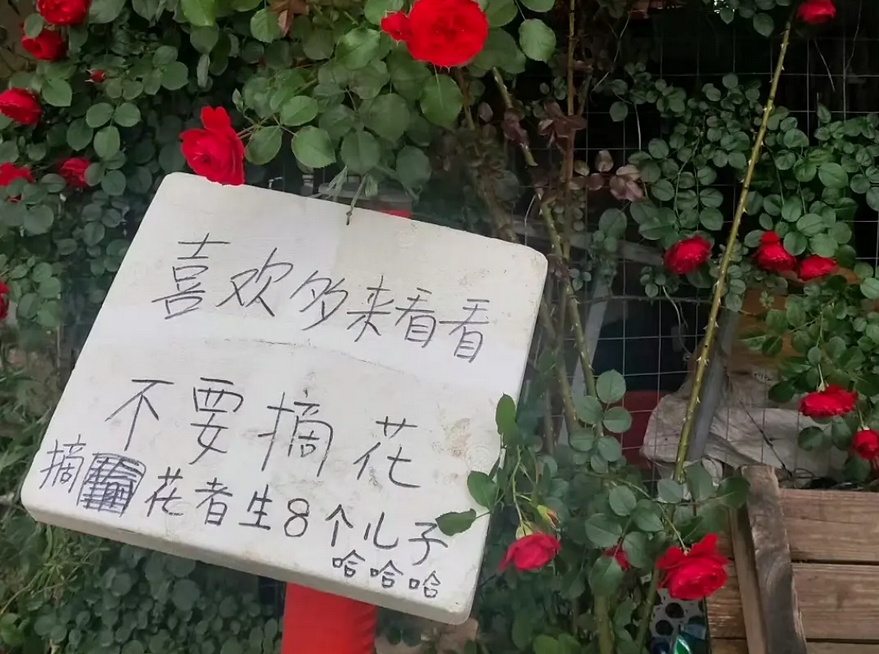 喜欢多来看看
不要摘花
摘花者生8个儿子
哈哈哈